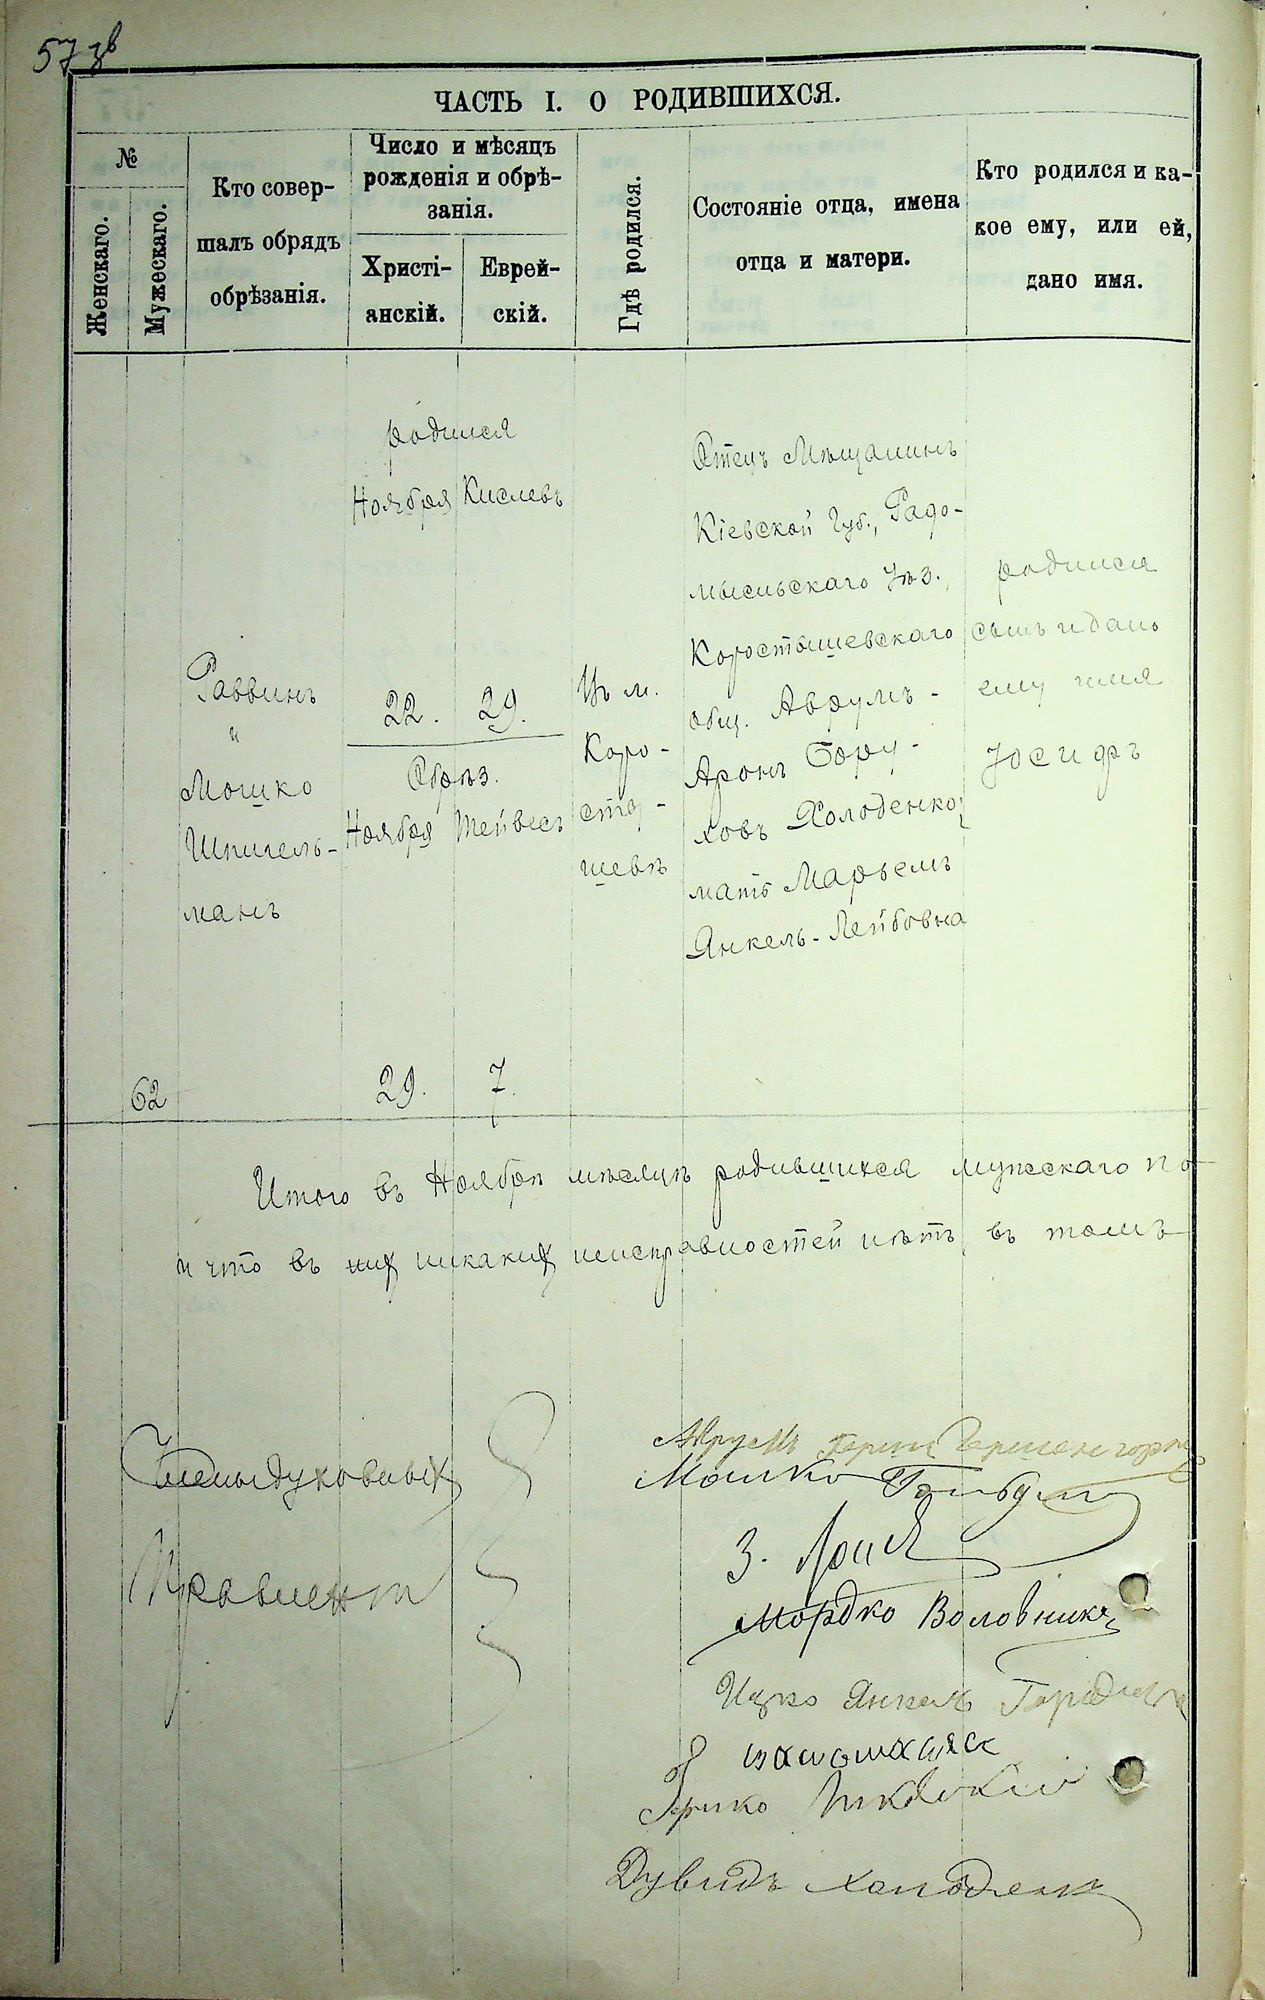 573в
ЧАСТЬ I. О РОДИВШИХСЯ.
№
Женскаго.
Мужескаго.
Кто совер-
шалъ обрядъ
обрѣзанія.
Число и мѣсяцъ
рожденія и обрѣ-
занія.
Христі-
анскій.
Еврей-
скій.
Гдѣ родился.
Состояніе отца, имена
отца и матери.
Кто родился и ка-
кое ему, или ей,
дано имя.
62
Раввинъ
и
Мошко
Шпигель-
манъ
родился
Ноября Кислевъ
22. 29.
Обрѣз.
Ноября Тейвесъ
29. 7.
Въ м.
Коро-
сты-
шевѣ
Отецъ Мѣщанинъ
Кіевской Губ., Радо-
мысльскаго Уѣз.,
Коростышевскаго
общ. Аврумъ-
Аронъ Бору-
ховъ Холоденко,
мать Марьемъ
Янкель-Лейбовна
родился
сынъ и дано
ему имя
Юсифъ
Итого въ Ноябрѣ мѣсяцѣ родившихся мужескаго по
и что въ них никаких неисправностей нѣтъ, въ томъ
Члены духовных
Правлент
Мошко
З.
Мордко Воловникъ
Ицко Янкель
Гершко
Дувидъ Холоденко